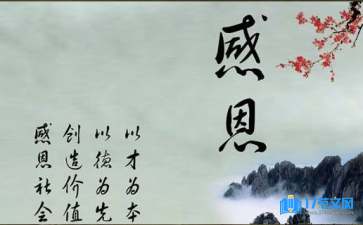 感恩
以才为本
以德为先
创造价值
感恩社会
17范文网